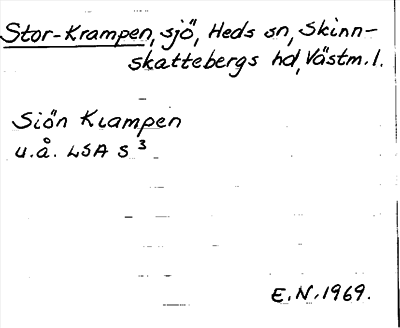 Stor-Krampen, sjö, Heds sn, Skinn-
skattebergs hd, Västm. l.
Siön Krampen
u.å. LSA S 3
E.N. 1969.